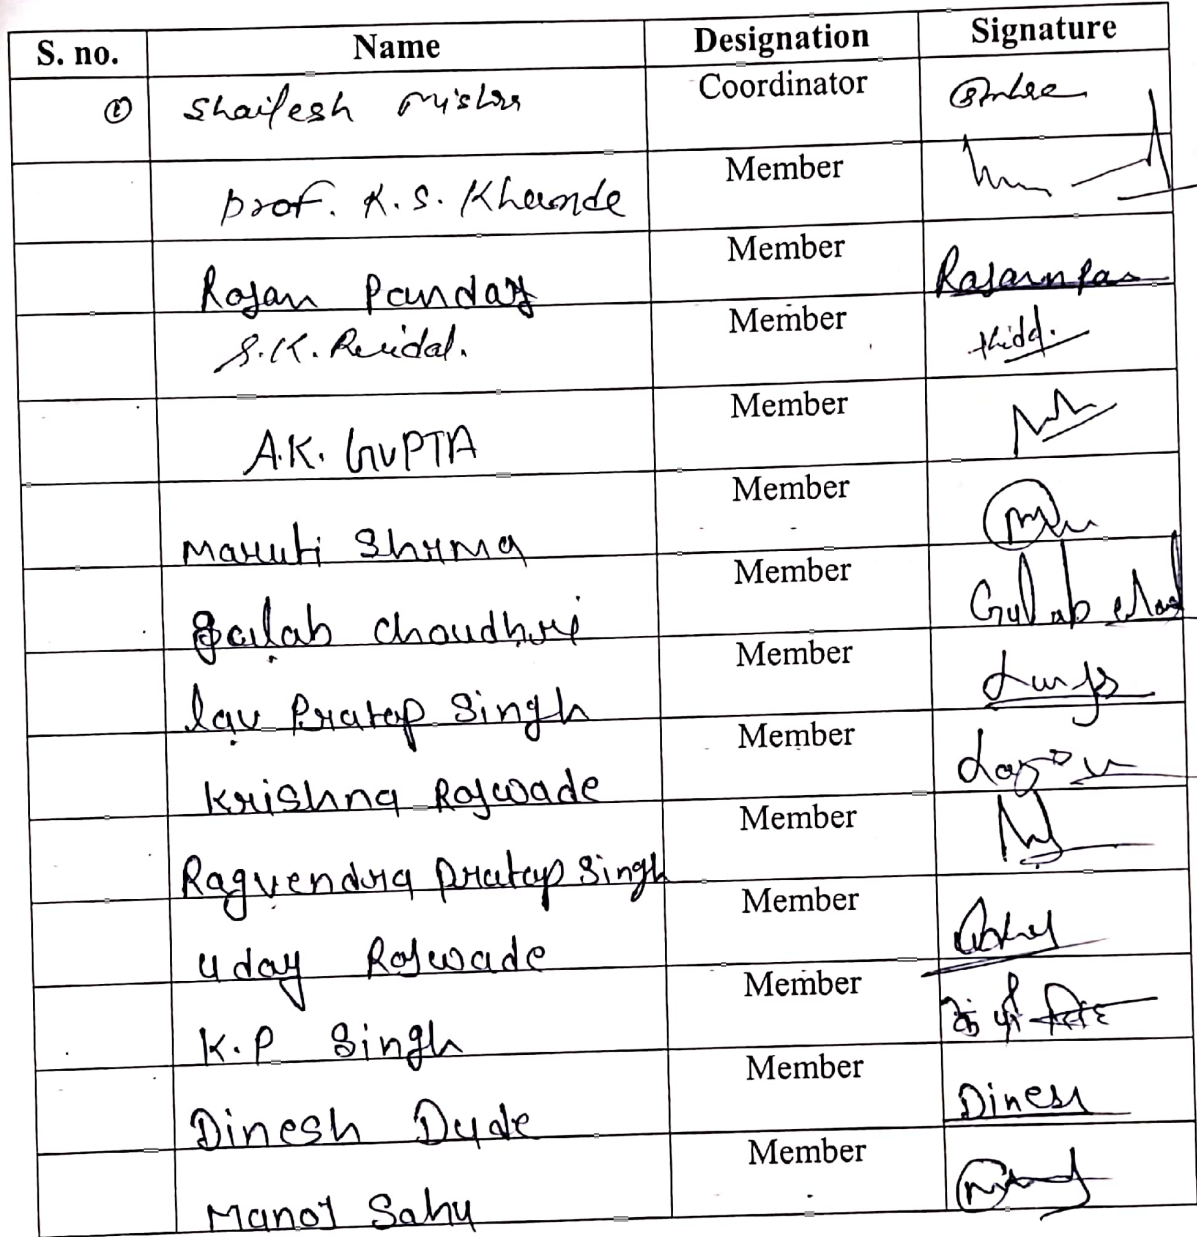 S. no. Name Designation Signature
① Shailesh Mishra Coordinator
Prof. K. S. Khairnde Member
Rajan Panday Member Rajan Pan
S.K. Member
A.K. GUPTA Member
Maruti Shrma Member
Gulab Choudhri Member Gulab
lav Pratap Singh Member
Krishna Rajwade Member
Ragvendra Pratap Singh Member
Uday Rajwade Member
K.P Singh Member के पी सिंह
Dinesh Dude Member Dinesh
Manoj Sahu Member